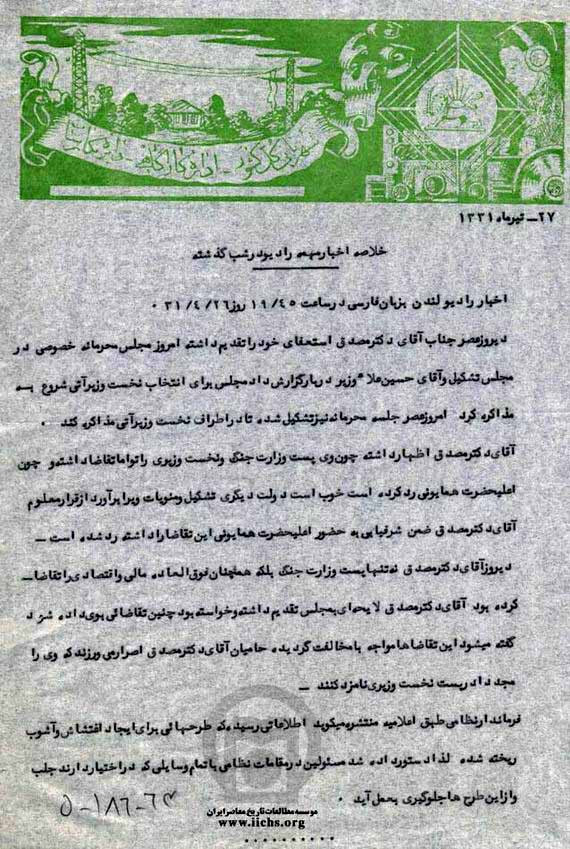 ۲۷ــ تیرماه ۱۳۳۱
خلاصه اخبار مهمه رادیو در شب گذشته
اخبار رادیو لندن بزبان فارسی در ساعت ۱۹/۴۵ روز ۳۱/۴/۲۶ ۰
دیروز عصر جناب آقای دکتر مصدق استعفای خود را تقدیم داشته امروز مجلس محرمانه خصوصی در
مجلس تشکیل و آقای حسین علاء وزیر دربار گزارش داد مجلس برای انتخاب نخست وزیر آتی شروع به
مذاکره کرد امروز عصر جلسه محرمانه نیز تشکیل شده تا در اطراف نخست وزیر آتی مذاکره کند ۰
آقای دکتر مصدق اظهار داشته چون وی پست وزارت جنگ و نخست وزیری را تواما تقاضا داشته و چون
اعلیحضرت همایونی رد کرده است خوب است دولت دیگری تشکیل و منویات ویرا برآورد از قرار معلوم
آقای دکتر مصدق ضمن شرفیابی به حضور اعلیحضرت همایونی این تقاضا را داشته رد شده است ــ
دیروز آقای دکتر مصدق نه تنها پست وزارت جنگ بلکه همچنان فوق العاده مالی و اقتصادی را تقاضاــ
کرده بود آقای دکتر مصدق لایحه‌ای به مجلس تقدیم داشته و خواسته بود چنین تقاضائی بوی داده شود
گفته میشود این تقاضاها مواجه با مخالفت گردیده حامیان آقای دکتر مصدق اصرار می ورزند که وی را
مجددا در پست نخست وزیری نامزد کنند ــ
فرماندار نظامی طبق اعلامیه منتشره میگوید اطلاعاتی رسیده که طرحهائی برای ایجاد اغتشاش و آشوب
ریخته شده لذا دستور داده شد مسئولین در مقامات نظامی با تمام وسایلی که در اختیار دارند جلب
و از این طرح ها جلوگیری بعمل آید ۰
۵-۱۸۶-۶۳
موسسه مطالعات تاریخ معاصر ایران
www.iichs.org